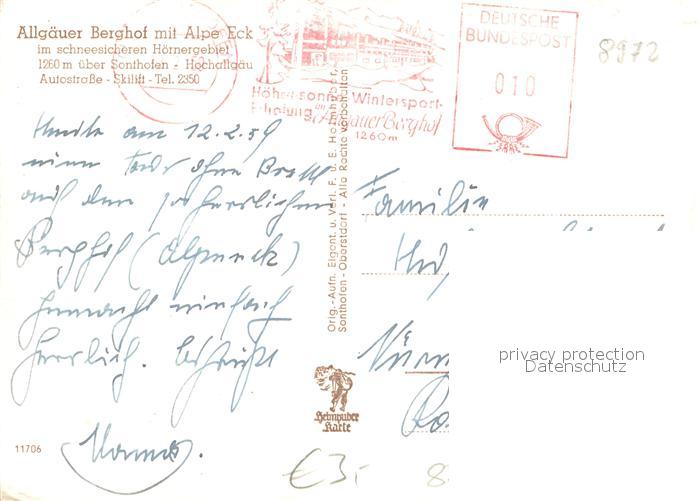 Allgäuer Berghof mit Alpe Eck
im schneesicheren Hörnergebiet
1260 m über Sonthofen - Hochallgäu
Autostraße - Skilift - Tel. 2350
Höhensonne Wintersport-
Erholung im Allgäuer Berghof
1260m
DEUTSCHE
BUNDESPOST
010
8972
Heute am 12.2.59
eine Tour ohne Brettl
auf den so herrlichen
Berghof (Alpeneck)
gemacht einfach
herrlich.
Orig.-Aufn. Eigent. u. Verl. F. u. E. Heimhuber,
Sonthofen - Oberstdorf - Alle Rechte vorbehalten
Familie
Nürn
Heimhuber
Karte
privacy protection
Datenschutz
11706
€3,-
8